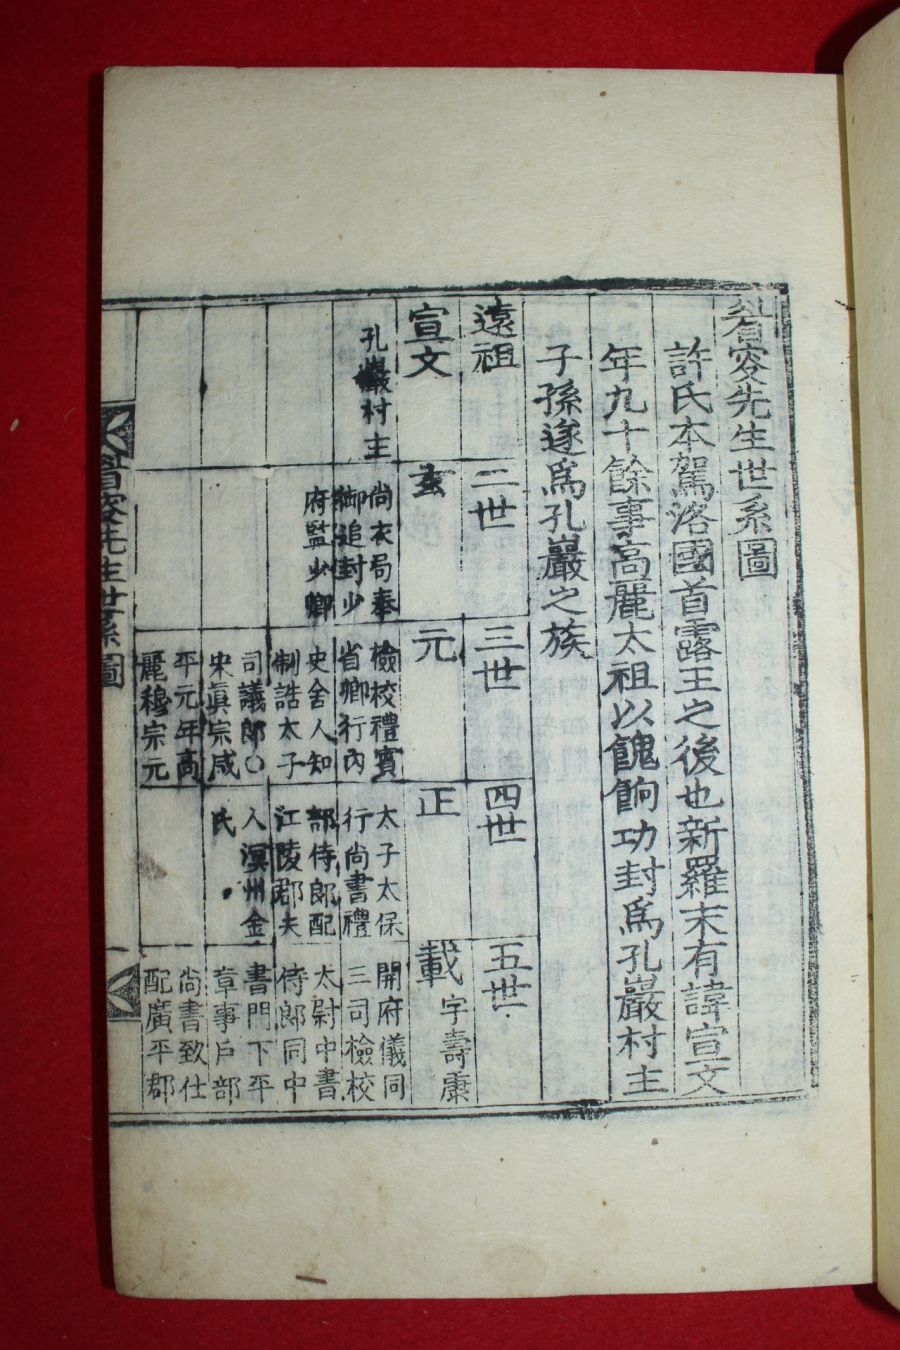 先生世系圖
許氏本駕洛國首露王之後也新羅末有諱宣文
年九十餘事高麗太祖以餽餉功封爲孔巖村主
子孫遂爲孔巖之族
遠祖
宣文
孔巖村主
二世
玄
尚衣局奉
御追封少
府監少卿
三世
元
檢校禮賓
省卿行內
史舍人知
制誥太子
司議郎○
宋眞宗咸
平元年高
麗穆宗元
四世
正
太子太保
行尚書禮
部侍郎配
江陵郡夫
人溟州金
氏
五世
載 字壽康
開府儀同
三司檢校
太尉中書
侍郎同中
書門下平
章事戶部
尚書致仕
配廣平郡
先生世系圖
一